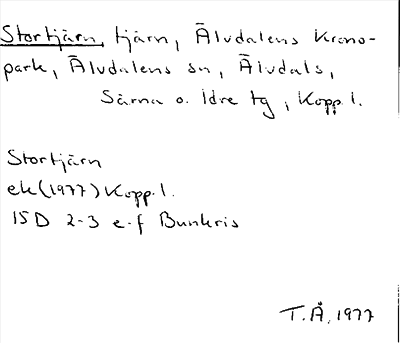 Stortjärn, tjärn, Älvdalens Krono-
park, Älvdalens sn, Älvdals,
Särna o. Idre tg, Kopp. l.
Stortjärn
ek (1977) Kopp. l.
15D 2-3 e-f Bunkris
T.Å, 1977